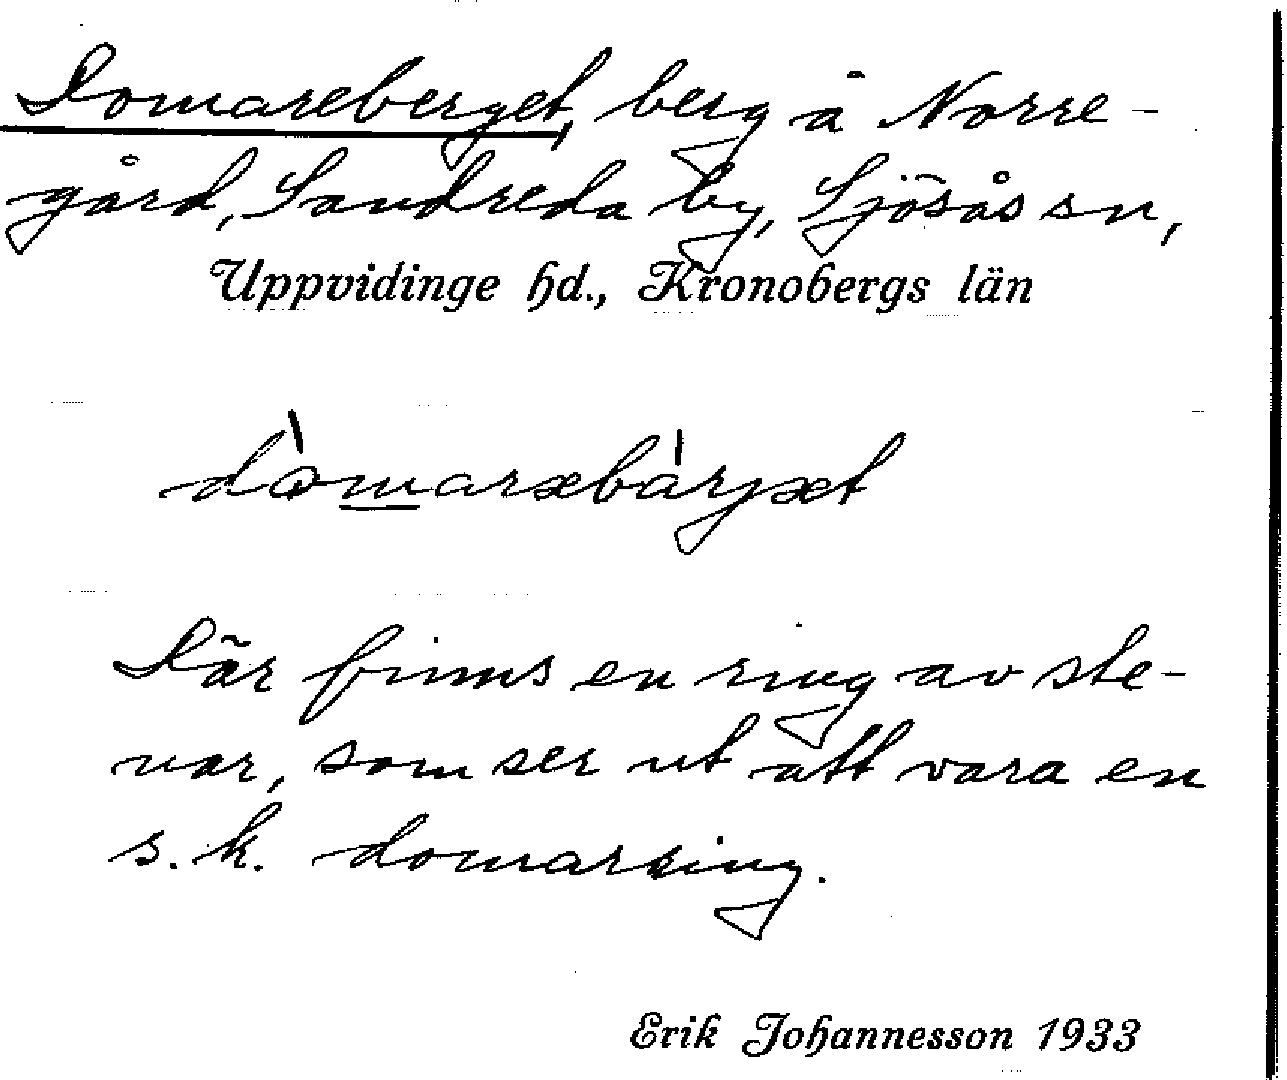 Domareberget, berg å Norre-
gård, Sandreda by, Sjösås sn,
Uppvidinge hd., Kronobergs län
Där finns en ring av ste-
nar, som ser ut att vara en
s. k. domarring.
Erik Johannesson 1933